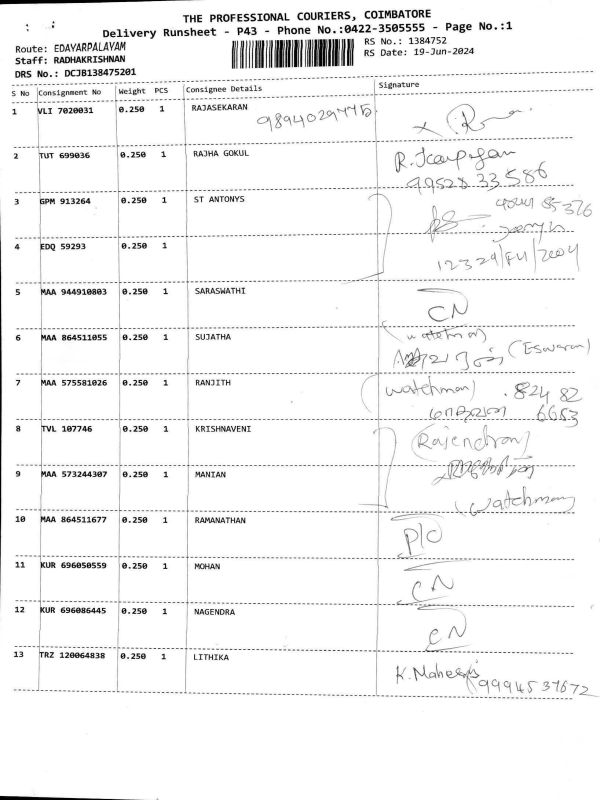 THE PROFESSIONAL COURIERS, COIMBATORE
Delivery Runsheet - P43 - Phone No.:0422-3505555 - Page No.:1
Route: EDAYARPALAYAM
Staff: RADHAKRISHNAN
DRS No.: DCJB138475201
RS No.: 1384752
RS Date: 19-Jun-2024
S No Consignment No Weight PCS Consignee Details Signature
1 VLI 7020031 0.250 1 RAJASEKARAN
2 TUT 699036 0.250 1 RAJHA GOKUL R.
99528 33586
3 GPM 913264 0.250 1 ST ANTONYS
4 EDQ 59293 0.250 1
5 MAA 944910803 0.250 1 SARASWATHI CN
6 MAA 864511055 0.250 1 SUJATHA (watchman)
(Eswaran)
7 MAA 575581026 0.250 1 RANJITH (watchman) 82482
6653
8 TVL 107746 0.250 1 KRISHNAVENI (Rajendran)
9 MAA 573244307 0.250 1 MANIAN
(watchman)
10 MAA 864511677 0.250 1 RAMANATHAN P/C
11 KUR 696050559 0.250 1 MOHAN CN
12 KUR 696086445 0.250 1 NAGENDRA CN
13 TRZ 120064838 0.250 1 LITHIKA K.
9994537672